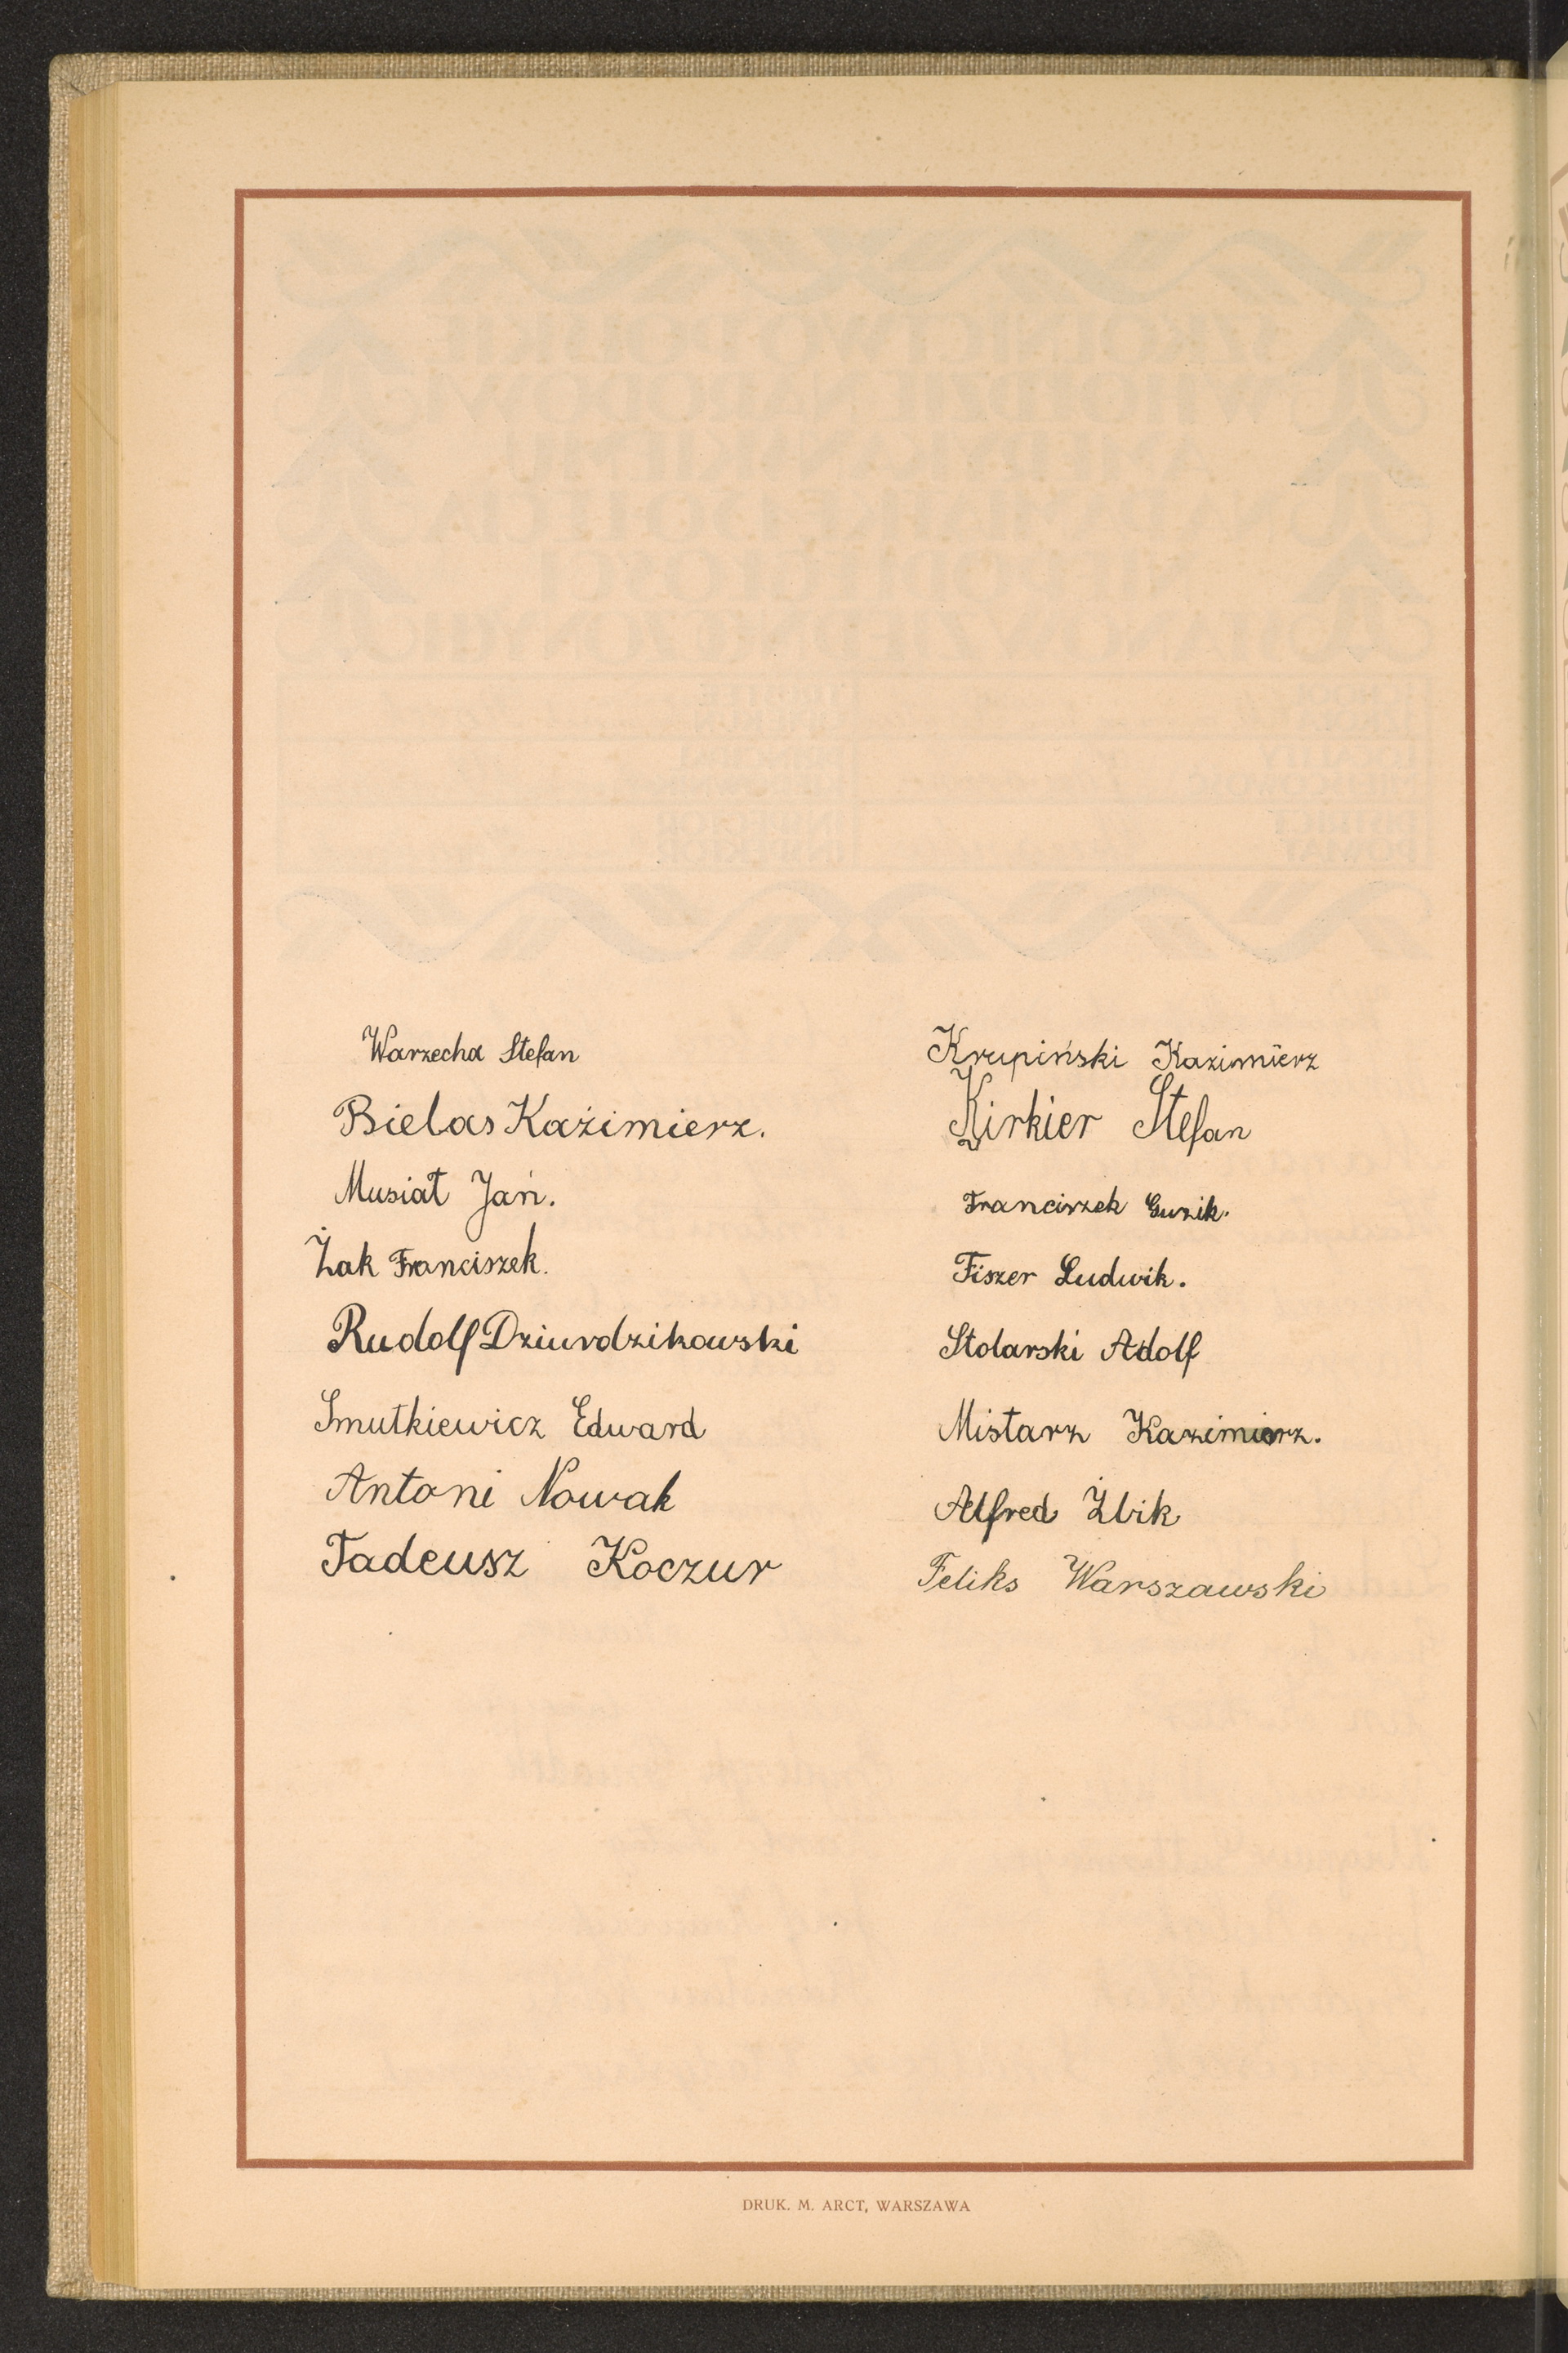 Warzecha Stefan
Bielas Każimierz.
Musiał Jań.
Żak Franciszek.
Rudolf Dziurdzikowski
Smutkiewicz Edward
Antoni Nowak
Tadeusz Koczur
Krupiński Kazimierz
Kirkier Stefan
Franciszek Guzik.
Fiszer Ludwik.
Stolarski Adolf
Mistarz Kazimierz.
Alfred Żbik
Feliks Warszawski
DRUK. M. ARCT, WARSZAWA